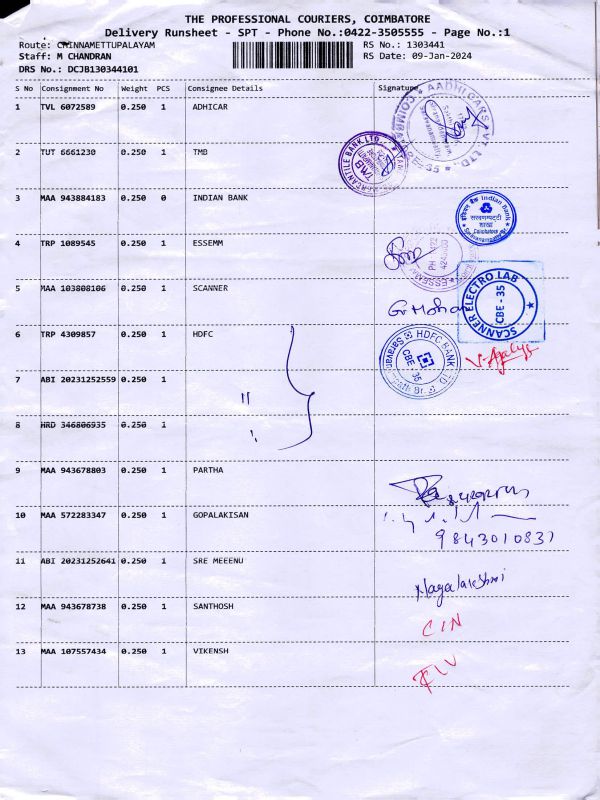 THE PROFESSIONAL COURIERS, COIMBATORE
Delivery Runsheet - SPT - Phone No.:0422-3505555 - Page No.:1
Route: CHINNAMETTUPALAYAM RS No.: 1303441
Staff: M CHANDRAN RS Date: 09-Jan-2024
DRS No.: DCJB130344101
S No Consignment No Weight PCS Consignee Details Signature
1 TVL 6072589 0.250 1 ADHICAR
2 TUT 6661230 0.250 1 TMB
3 MAA 943884183 0.250 0 INDIAN BANK
4 TRP 1089545 0.250 1 ESSEMM
5 MAA 103808106 0.250 1 SCANNER
SCANNER ELECTRO LAB
CBE - 35
6 TRP 4309857 0.250 1 HDFC
HDFC BANK LTD
CBE 35
7 ABI 20231252559 0.250 1 "
8 HRD 346806935 0.250 1
9 MAA 943678803 0.250 1 PARTHA
10 MAA 572283347 0.250 1 GOPALAKISAN
9843010831
11 ABI 20231252641 0.250 1 SRE MEEENU Nagalakshmi
12 MAA 943678738 0.250 1 SANTHOSH CIN
13 MAA 107557434 0.250 1 VIKENSH